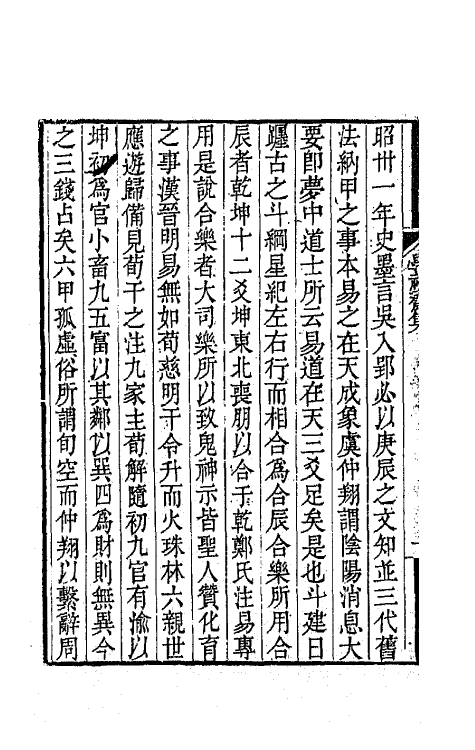 昭卅一年史墨言吳入郢必以庚辰之文知並三代舊
法納甲之事本易之在天成象虞仲翔謂陰陽消息大
要卽夢中道士所云易道在天三爻足矣是也斗建日
躔古之斗綱星紀左右行而相合爲合辰合樂所用合
辰者乾坤十二爻坤東北喪朋以合于乾鄭氏注易專
用是說合樂者大司樂所以致鬼神示皆聖人贊化育
之事漢晉明易無如荀慈明干令升而火珠林六親世
應遊歸備見荀干之注九家主荀解隨初九官有渝以
坤初爲官小畜九五富以其鄰以巽四爲財則無異今
之三錢占矣六甲孤虛俗所謂旬空而仲翔以繫辭周